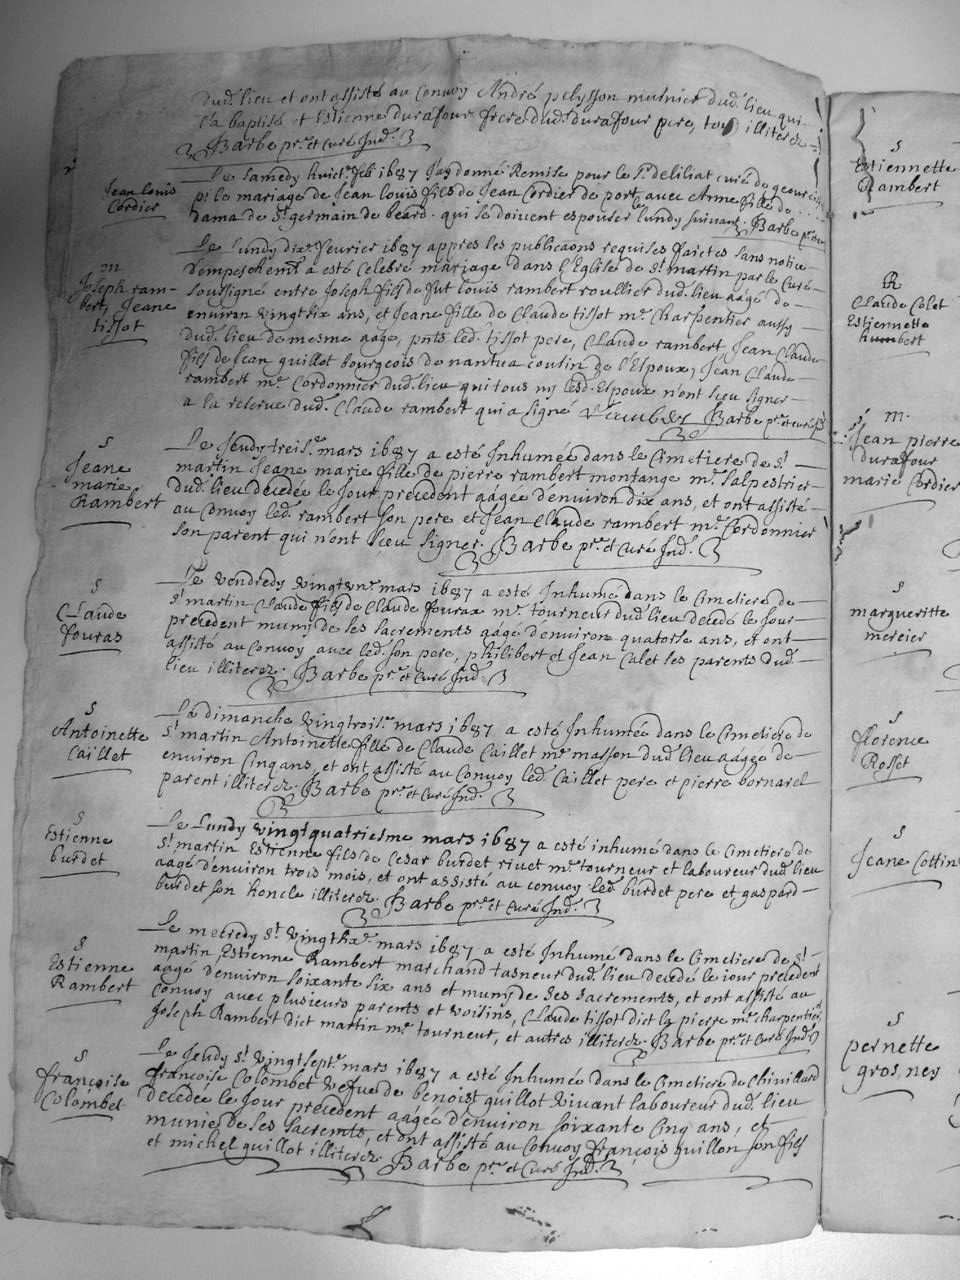 dud. lieu et ont assisté au Convoy André pelysson musnier dud. lieu qui
l'a baptisé et Estienne durafour frere dud. durafour pere, tous illiterez
Barbe pr. et Curé Ind.
Jean louis
Cordier
Le samedy huict. feb. 1687 Jay donné Remise pour le Sr. deliliat curé de geovr
pr. le mariage de Jean louis fils de Jean Cordier de port, avec Anne fille de
dama de St. germain de beard. qui se doivent espouser lundy suivant. Barbe pr. cu
m
Joseph ram-
bert, Jeane
tissot
Le lundy dix. fevrier 1687 appres les publicaons requises faictes sans notice
d'empeschemt. a esté Celebré mariage dans l'Eglise de St. martin par le Curé
soussigné entre Joseph fils de fut louis rambert roullier dud. lieu aagé de
environ vingt six ans, et Jeane fille de Claude tissot me. Charpentier aussy
dud. lieu de mesme aage, pnts led. tissot pere, Claude rambert Jean Claude
fils de Jean guillot bourgeois de nantua cousin de l'Espoux, Jean Claude
rambert me. Cordonnier dud. lieu qui tous ny lesd. Espoux n'ont sceu signer
a la reserve dud. Claude rambert qui a signé Rambert Barbe pr. et curé
S
Jeane
marie
Rambert
Le Jeudy treis. mars 1687 a esté Inhumée dans le Cimetiere de St.
martin Jeane marie fille de pierre rambert montange me. Salpestrier
dud. lieu decedée le Jour precedent aagée d'environ dix ans, et ont assisté
au Convoy led. rambert son pere et Jean Claude rambert me. Cordonnier
son parent qui n'ont sceu signer. Barbe pr. et Curé Ind.
S
Claude
fouras
Le vendredy vingtvn. mars 1687 a esté Inhumé dans le Cimetiere de
St. martin Claude fils de Claude fouras me. tourneur dud. lieu decedé le Jour
precedent muny de ses sacrements aagé d'environ quatorse ans, et ont
assisté au Convoy avec led. son pere, philibert et Jean Calet ses parents dud.
lieu illiterez. Barbe pr. et Curé Ind.
S
Antoinette
Caillet
Le dimanche vingtrois. mars 1687 a esté Inhumée dans le Cimetiere de
St. martin Antoinette fille de Claude Caillet me. masson dud. lieu aagée de
environ Cinq ans, et ont assisté au Convoy led. Caillet pere et pierre bornarel
parent illiterez. Barbe pr. et Curé Ind.
S
Estienne
burdet
Le Lundy vingtquatriesme mars 1687 a esté inhumé dans le Cimetiere de
St. martin Estienne fils de Cesar burdet rivet me. tourneur et laboureur dud. lieu
aagé d'environ trois mois, et ont assisté au convoy led. burdet pere et gaspard
burdet son honcle illiterez. Barbe pr. et Curé Ind.
S
Estienne
Rambert
Le mecredy St. vingt six. mars 1687 a esté Inhumé dans le Cimetiere de St.
martin Estienne Rambert marchand tasneur dud. lieu decedé le jour precedent
aagé d'environ soixante six ans et muny de ses sacrements, et ont assisté au
Convoy avec plusieurs parents et voisins, Claude tissot dict la pierre me. charpentier,
Joseph Rambert dict martin me. tourneur, et autres illiterez. Barbe pr. et Curé Ind.
S
françoise
Colombet
Le Jeudy St. vingt sept. mars 1687 a esté Inhumée dans le Cimetiere de Chivillard
françoise Colombet vefue de benoist guillot vivant laboureur dud. lieu
decedée le Jour precedent aagée d'environ soixante cinq ans, et
munie de ses sacremts, et ont assisté au Convoy françois guillon son fils
et michel guillot illiterez. Barbe pr. et Curé Ind.
S
Estiennette
Rambert
R
Claude Calet
Estiennette
humbert
m.
Jean pierre
durafour
marie Cordier
S
margueritte
mercier
S
florence
Rosset
S
Jeane Cottin
S
pernette
gros, ney